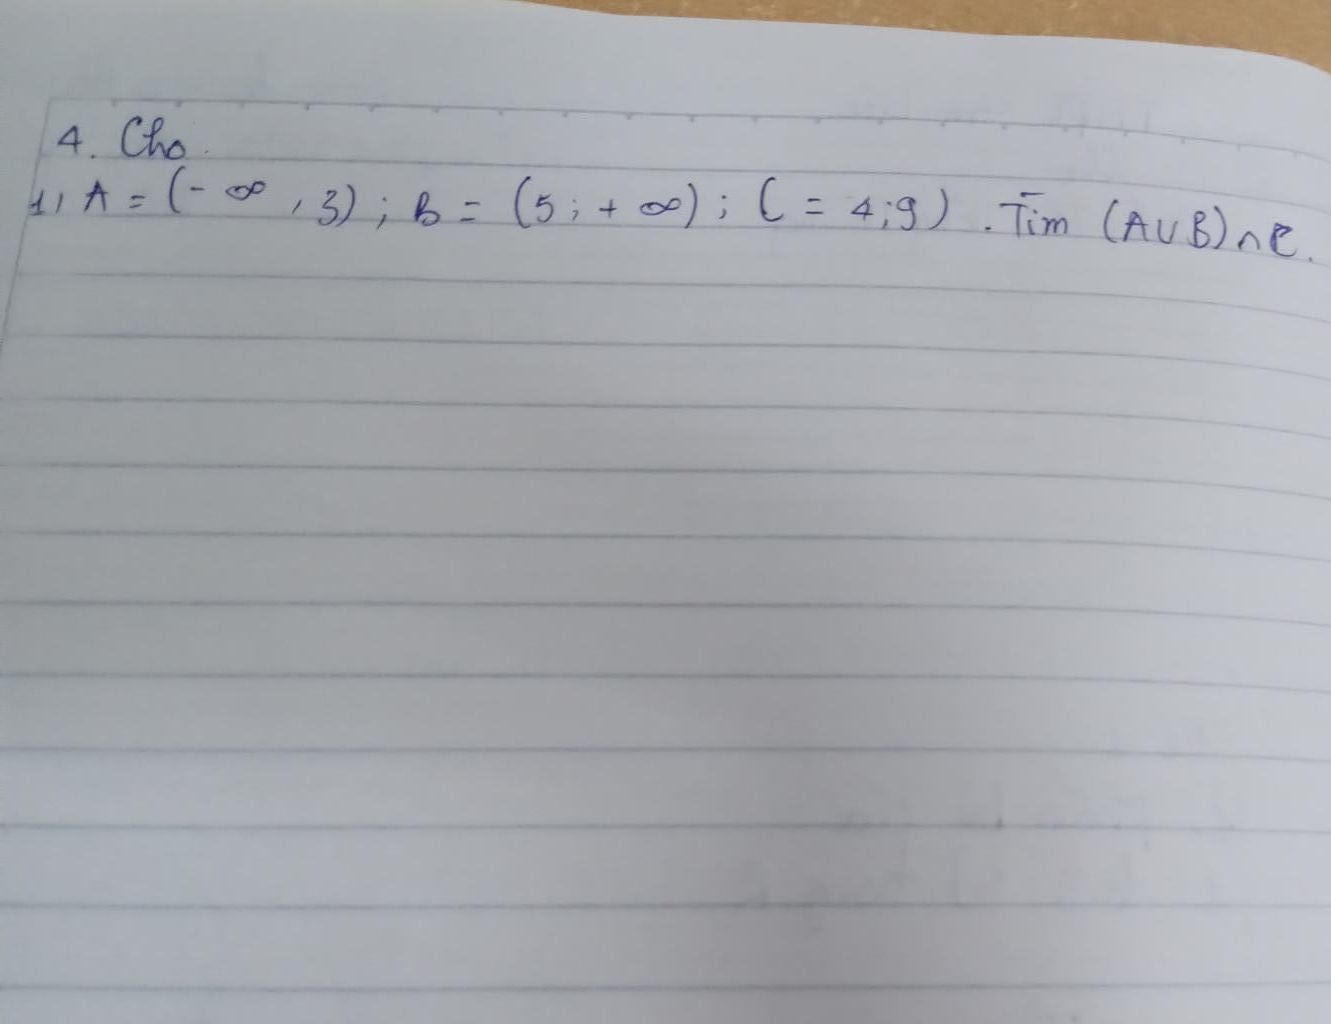 4. Cho.
1) A = (- ∞ , 3) ; B = (5 ; + ∞) ; C = 4 ; 9) . Tim (A ∪ B) ∩ C.